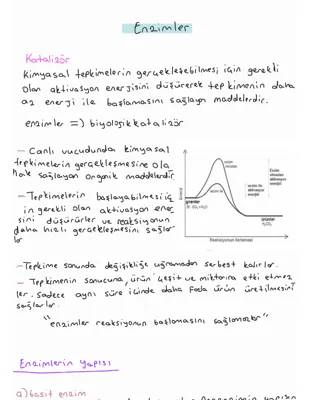 Enzimler
Katalizör
Kimyasal tepkimelerin gerçekleşebilmesi için gerekli
olan aktivasyon enerjisini düşürerek tepkimenin daha
az enerji ile başlamasını sağlayan maddelerdir.
enzimler => biyolojik katalizör
- Canlı vucudunda kimyasal
tepkimelerin gerçekleşmesine ola
nak sağlayan organik maddelerdir
- Tepkimelerin başlayabilmesi iç
in gerekli olan aktivasyon ener
sini düşürürler ve reaksiyonun
daha hızlı gerçekleşmesini sağlar
lar
- Tepkime sonunda değişikliğe uğramadan serbest kalırlar.
- Tepkimenin sonucuna, ürün çeşit ve miktarına etki etmez
ler. sadece aynı süre içinde daha fazla ürün üretilmesini
sağlarlar.
"enzimler reaksiyonun başlamasını sağlamazlar"
Reaksiyonun ilerlemesi
Enzimlerin Yapısı
a) basit enzim